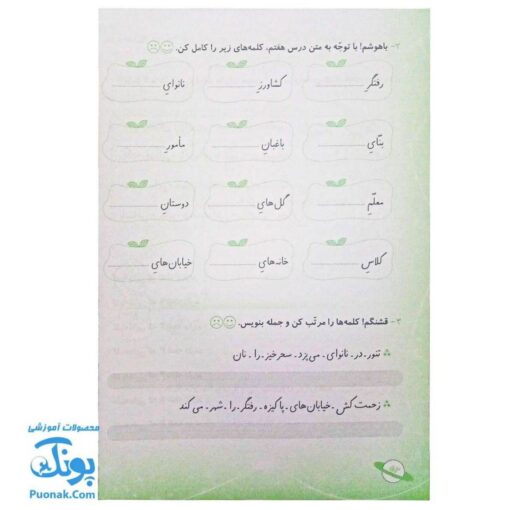 ۲- باهوشم! با توجّه به متن درس هفتم، کلمه‌های زیر را کامل کن.
رفتگرِ کشاورزِ نانوایِ
بنّایِ باغبانِ مأمورِ
معلّمِ گل‌هایِ دوستانِ
کلاسِ خانه‌هایِ خیابان‌هایِ
۳- قشنگم! کلمه‌ها را مرتّب کن و جمله بنویس.
تنور ـ در ـ نانوای ـ می‌پزد ـ سحرخیز ـ را ـ نان
زحمت کش ـ خیابان‌های ـ پاکیزه ـ رفتگر ـ را ـ شهر ـ می کند
محصولات آموزشی
پونک
Puonak.Com